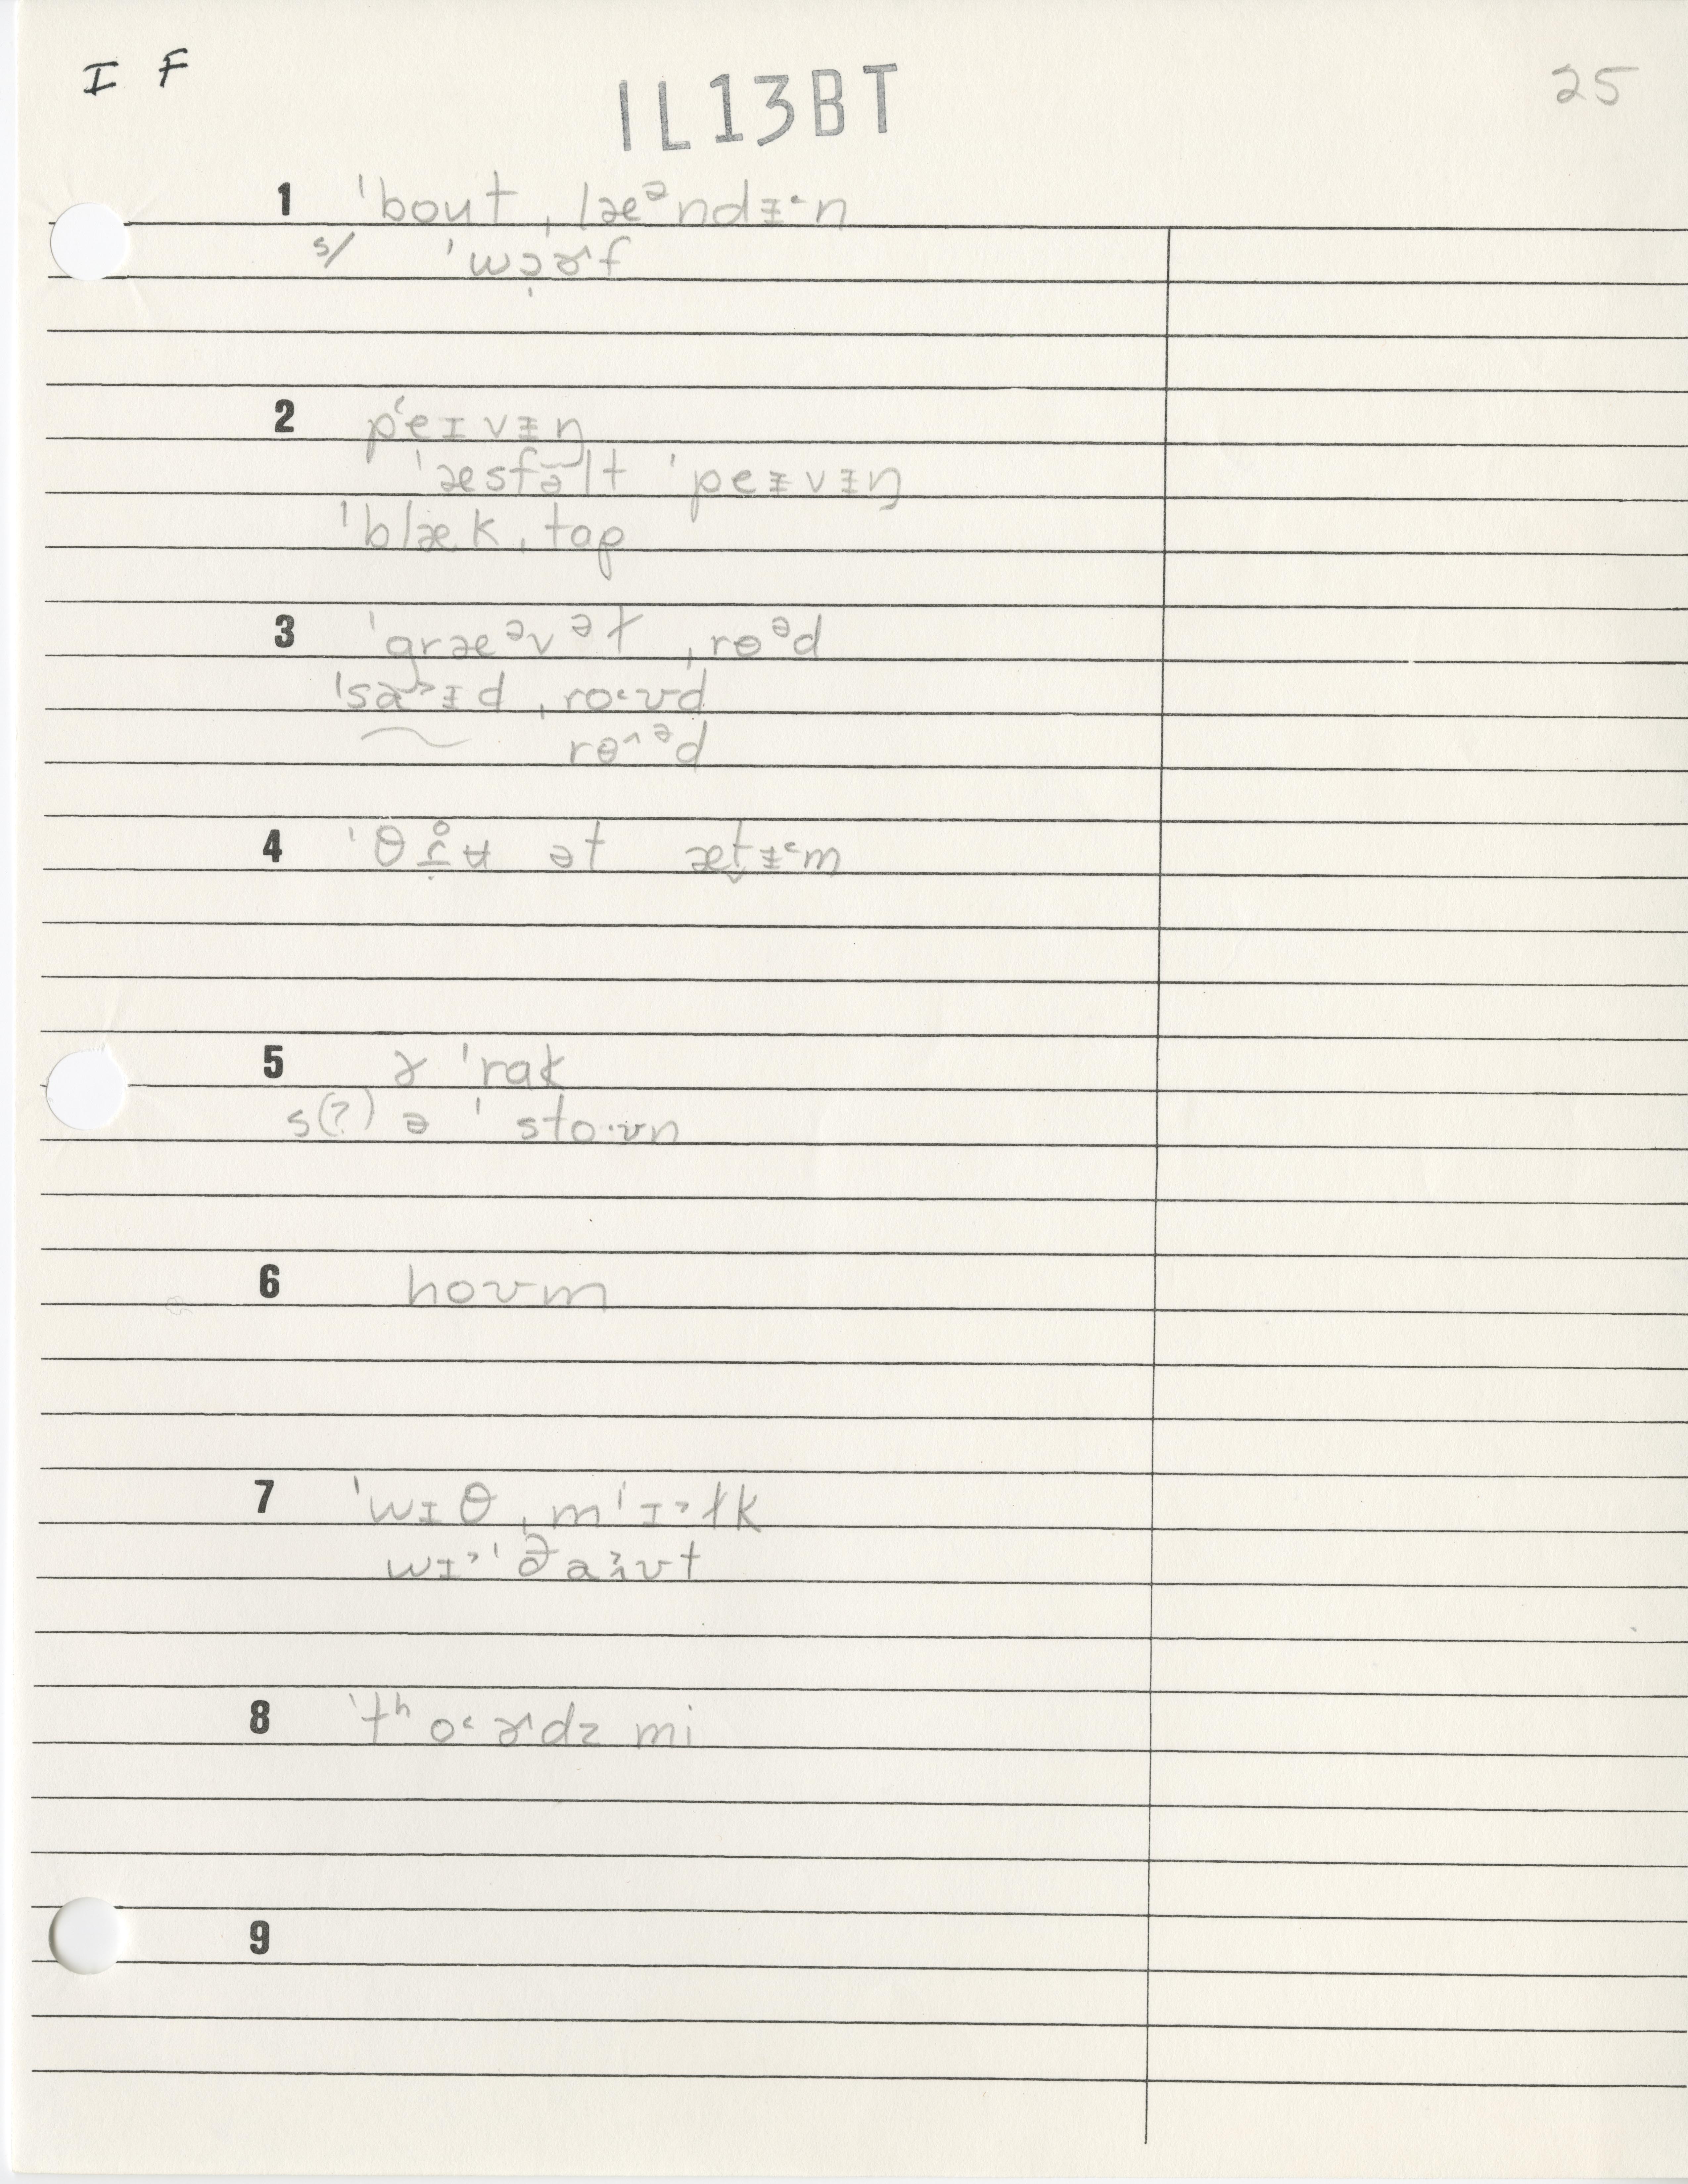 I F
IL13BT
25
1 ˈbout ˌlæᵊndɪ̵˂n
s/ ˈwɔ̣ɚf
2 pʻeɪvɪ̵ŋ
ˈæsfəlt ˈpeɪ̵vɪ̵ŋ
ˈblæk ˌtap
3 ˈgræᵊvəɫ ˌrɵᵊd
ˈsa˃ɪ̵d ˌro˂ʊd
rɵ˄ᵊd
4 ˈθr̥ʉ ət æt̬ɪ̵˂m
5 ɚ ˈrak
s(?) ə ˈstoˑʊn
6 hoʊm
7 ˈwɪθ ˌmˈɪ˃ɫk
wɪ˃ˈðaʊt
8 ˈtʰo˂ɚdz mi
9